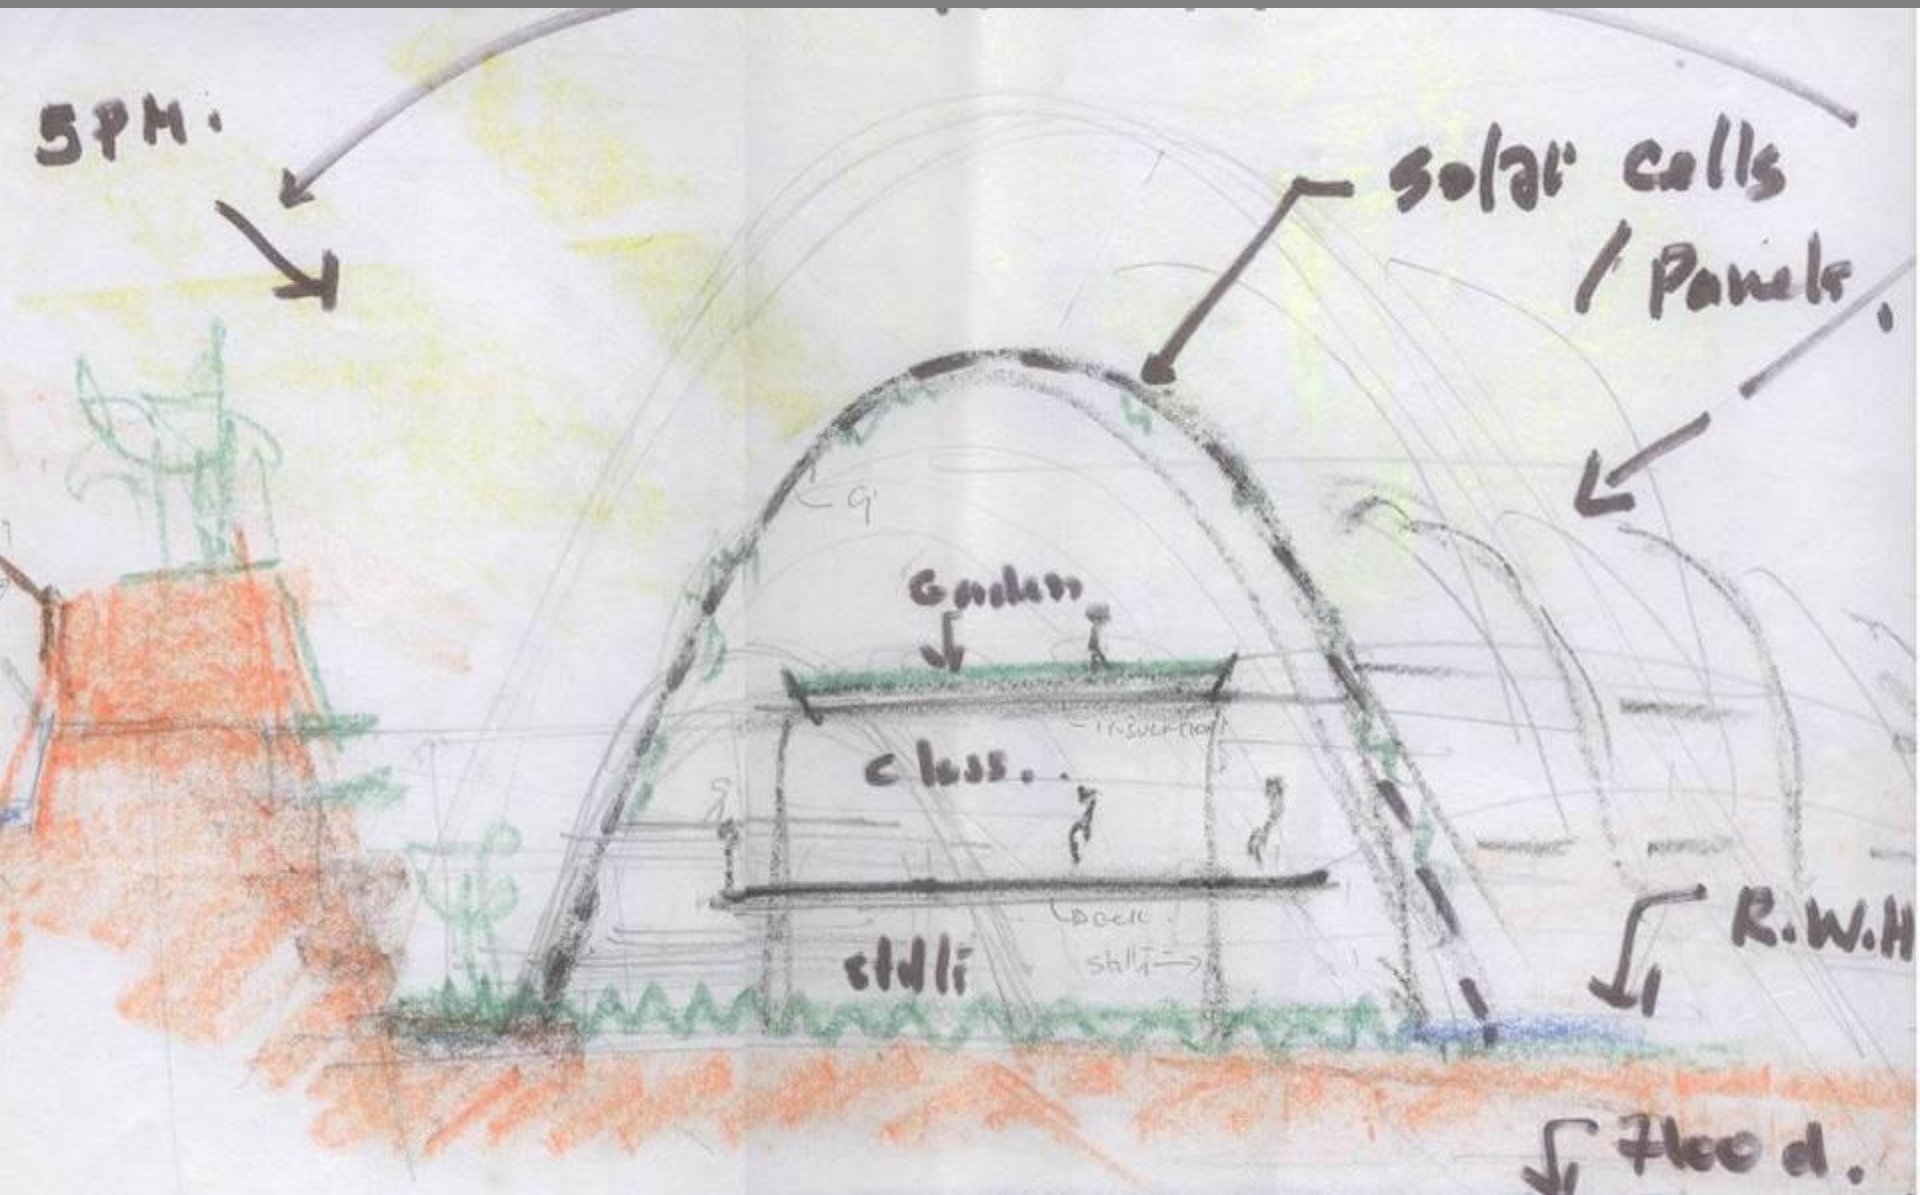 5PM.
solar cells
/ Panels.
Garden
insulation
class..
Deck.
stilli
stilli
R.W.H
Flood.